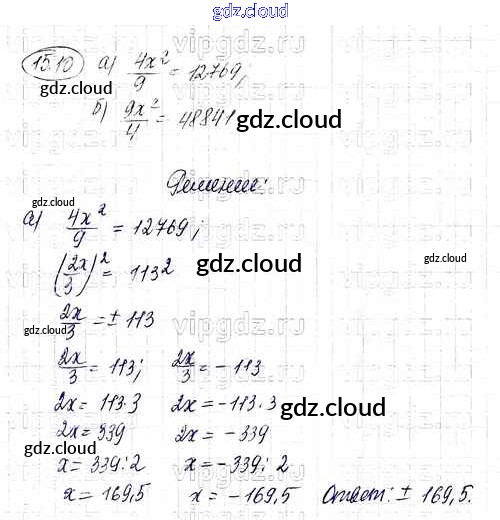 gdz.cloud
15.10 а) 4x²/9 = 12769,
gdz.cloud
б) 9x²/4 = 48841 gdz.cloud
Решение:
gdz.cloud
а) 4x²/9 = 12769;
(2x/3)² = 113² gdz.cloud gdz.cloud
2x/3 = ± 113
vipgdz.ru
2x/3 = 113; 2x/3 = - 113
2x = 113·3 2x = -113·3 gdz.cloud
2x = 339 2x = - 339
gdz.cloud
x = 339:2 x = -339:2
x = 169,5 x = - 169,5 Ответ: ± 169,5.